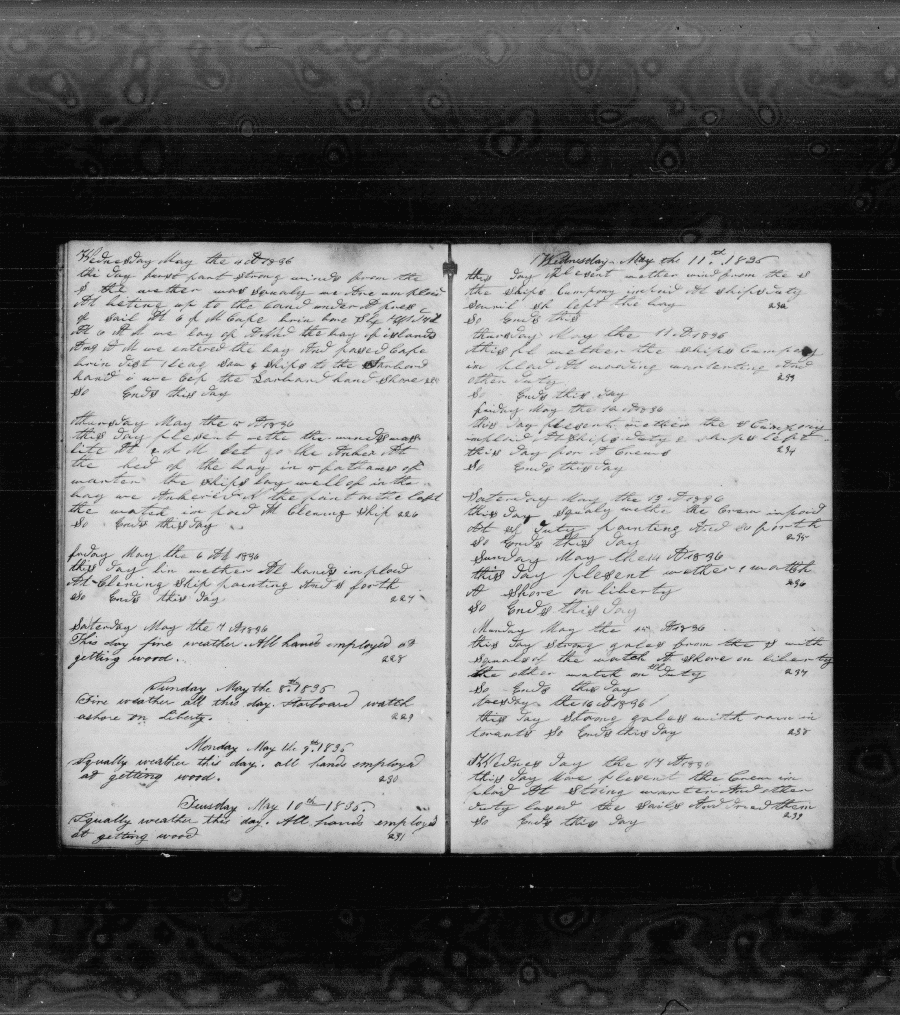 Wednesday May the 4 D 1836
the day first part Strong winds from the
S the wether was Squaly we are imploid
At beting up to the land under A pres
of Sail At 6 P M Cape horn bore
At 6 A M we lay of Ashid the bay of islands
Am we entered the bay And pased Cape
brin Just 1 leag Saw ships to the
hand & we kep the Larband hand Shore 225
So Ends this day
thursday May the 5 D 1836
this day plesent wethe the wind was
lite At A M let go the Anker At
the hed of the bay in 5 fathoms of
warter the ships lay well of in the
bay we Ankered the point
the watch im ploid At Clening Ship 226
So Ends this day
friday May the 6 D 1836
this day fin wether All hands imploid
At Clening Ship painting And so forth
So Ends this day 227
Saturday May the 7 D 1836
This day fine weather. All hands employed at
getting wood. 228
Sunday May the 8th 1836
Fine weather all this day. Starboard watch
ashore on liberty. 229
Monday May the 9th 1836
Squally weather this day. all hands employed
at getting wood. 230
Tuesday May 10th 1836.
Squally weather this day. All hands employed
at getting wood 231
Wednesday May the 11th 1836
this day plesent wether wind from the S
the ships Cumpony imploid At ships duty
left the bay 232
So Ends this
thursday May the 11 D 1836
this pl wether the ships Cumpony
in ploid At And
other duty 233
So Ends this day
friday May the 1836
this day plesent wether the s Cumpony
imploid At ships duty 2 ships left
this day 234
So Ends this day
Saterday May the 13 D 1836
this day Squaly wethe the Crew imploid
At duty painting And so forth
So Ends this day 235
Sunday May the D 1836
this day plesent wether 1 watch
A shore on liberty 236
So Ends this day
Munday May the 15 D 1836
this day strong gales from the S with
Squals of the watch A shore on liberty
the other watch on duty 237
So Ends this day
the 16 D 1836
this day Strong gales with rain in
torants So Ends this day 238
Wednes day the 17 D 183
this day plesent the Crew im
ploid At warter And other
duty lused the sails And dried them
So Ends this day 239